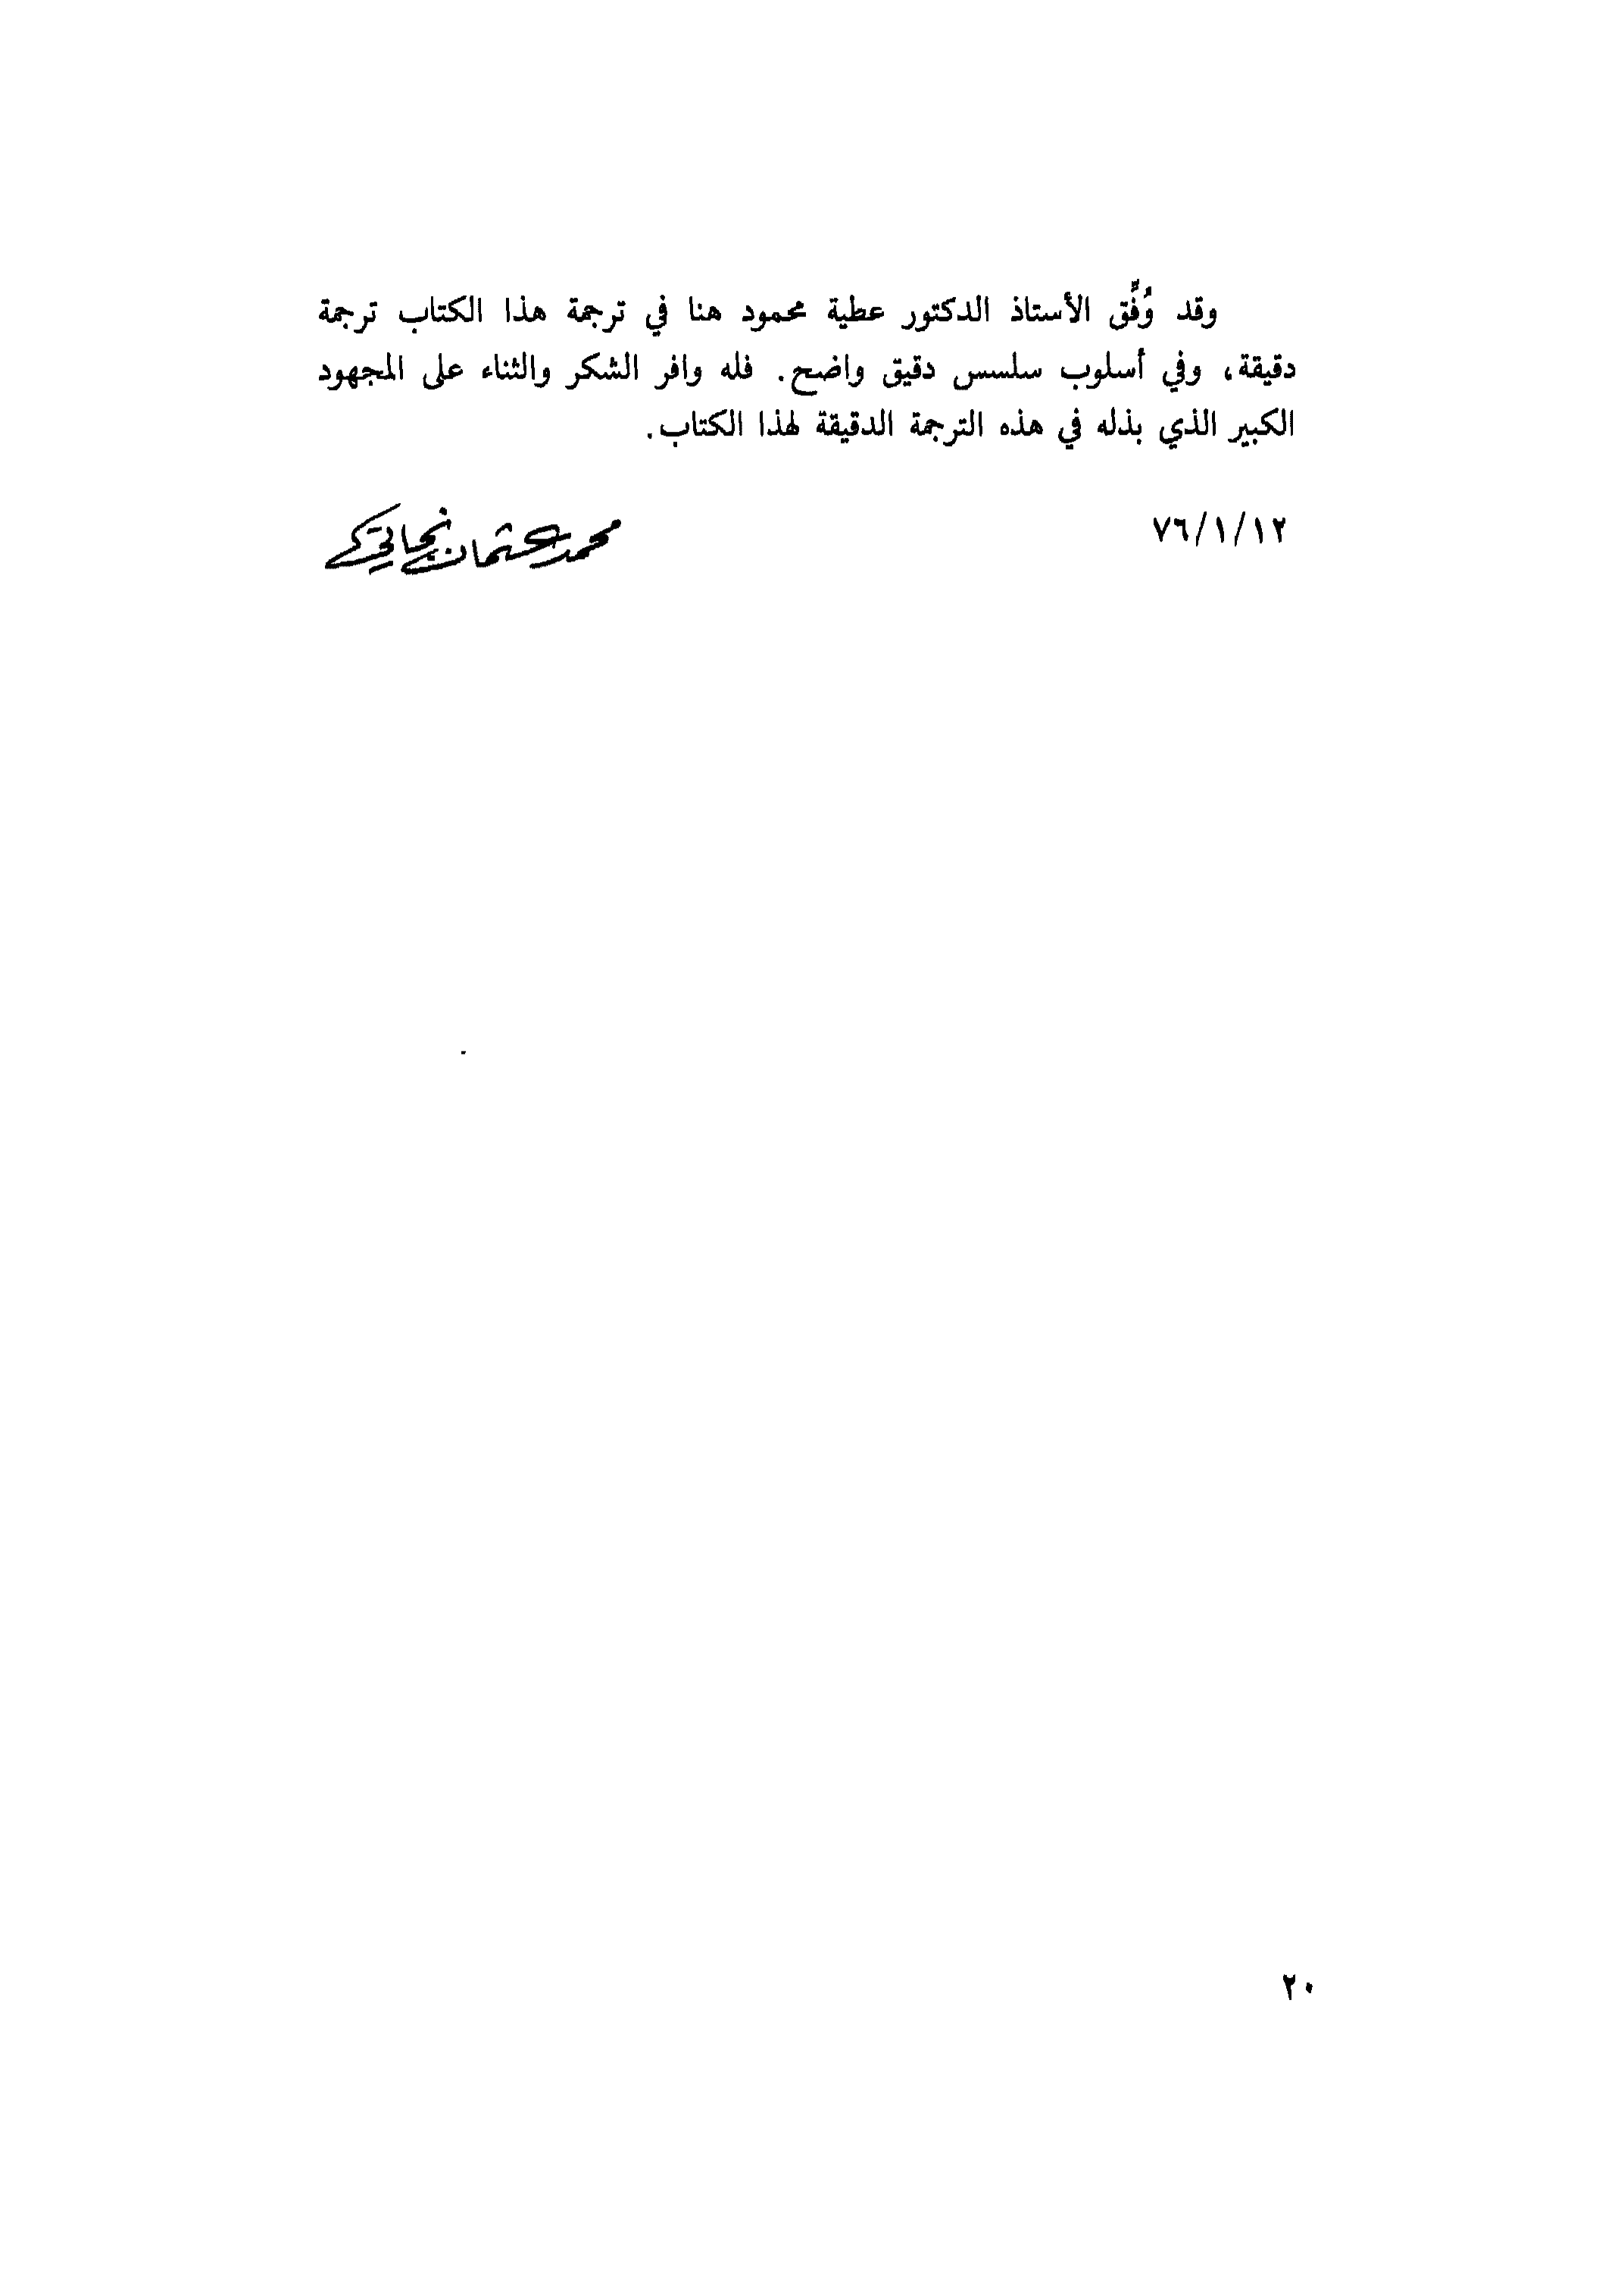 وقد وُفِّق الأستاذ الدكتور عطية محمود هنا في ترجمة هذا الكتاب ترجمة
دقيقة، وفي أسلوب سلسس دقيق واضح. فله وافر الشكر والثناء على المجهود
الكبير الذي بذله في هذه الترجمة الدقيقة لهذا الكتاب.
٧٦/١/١٢
محمد عثمان نجاتي
٢٠